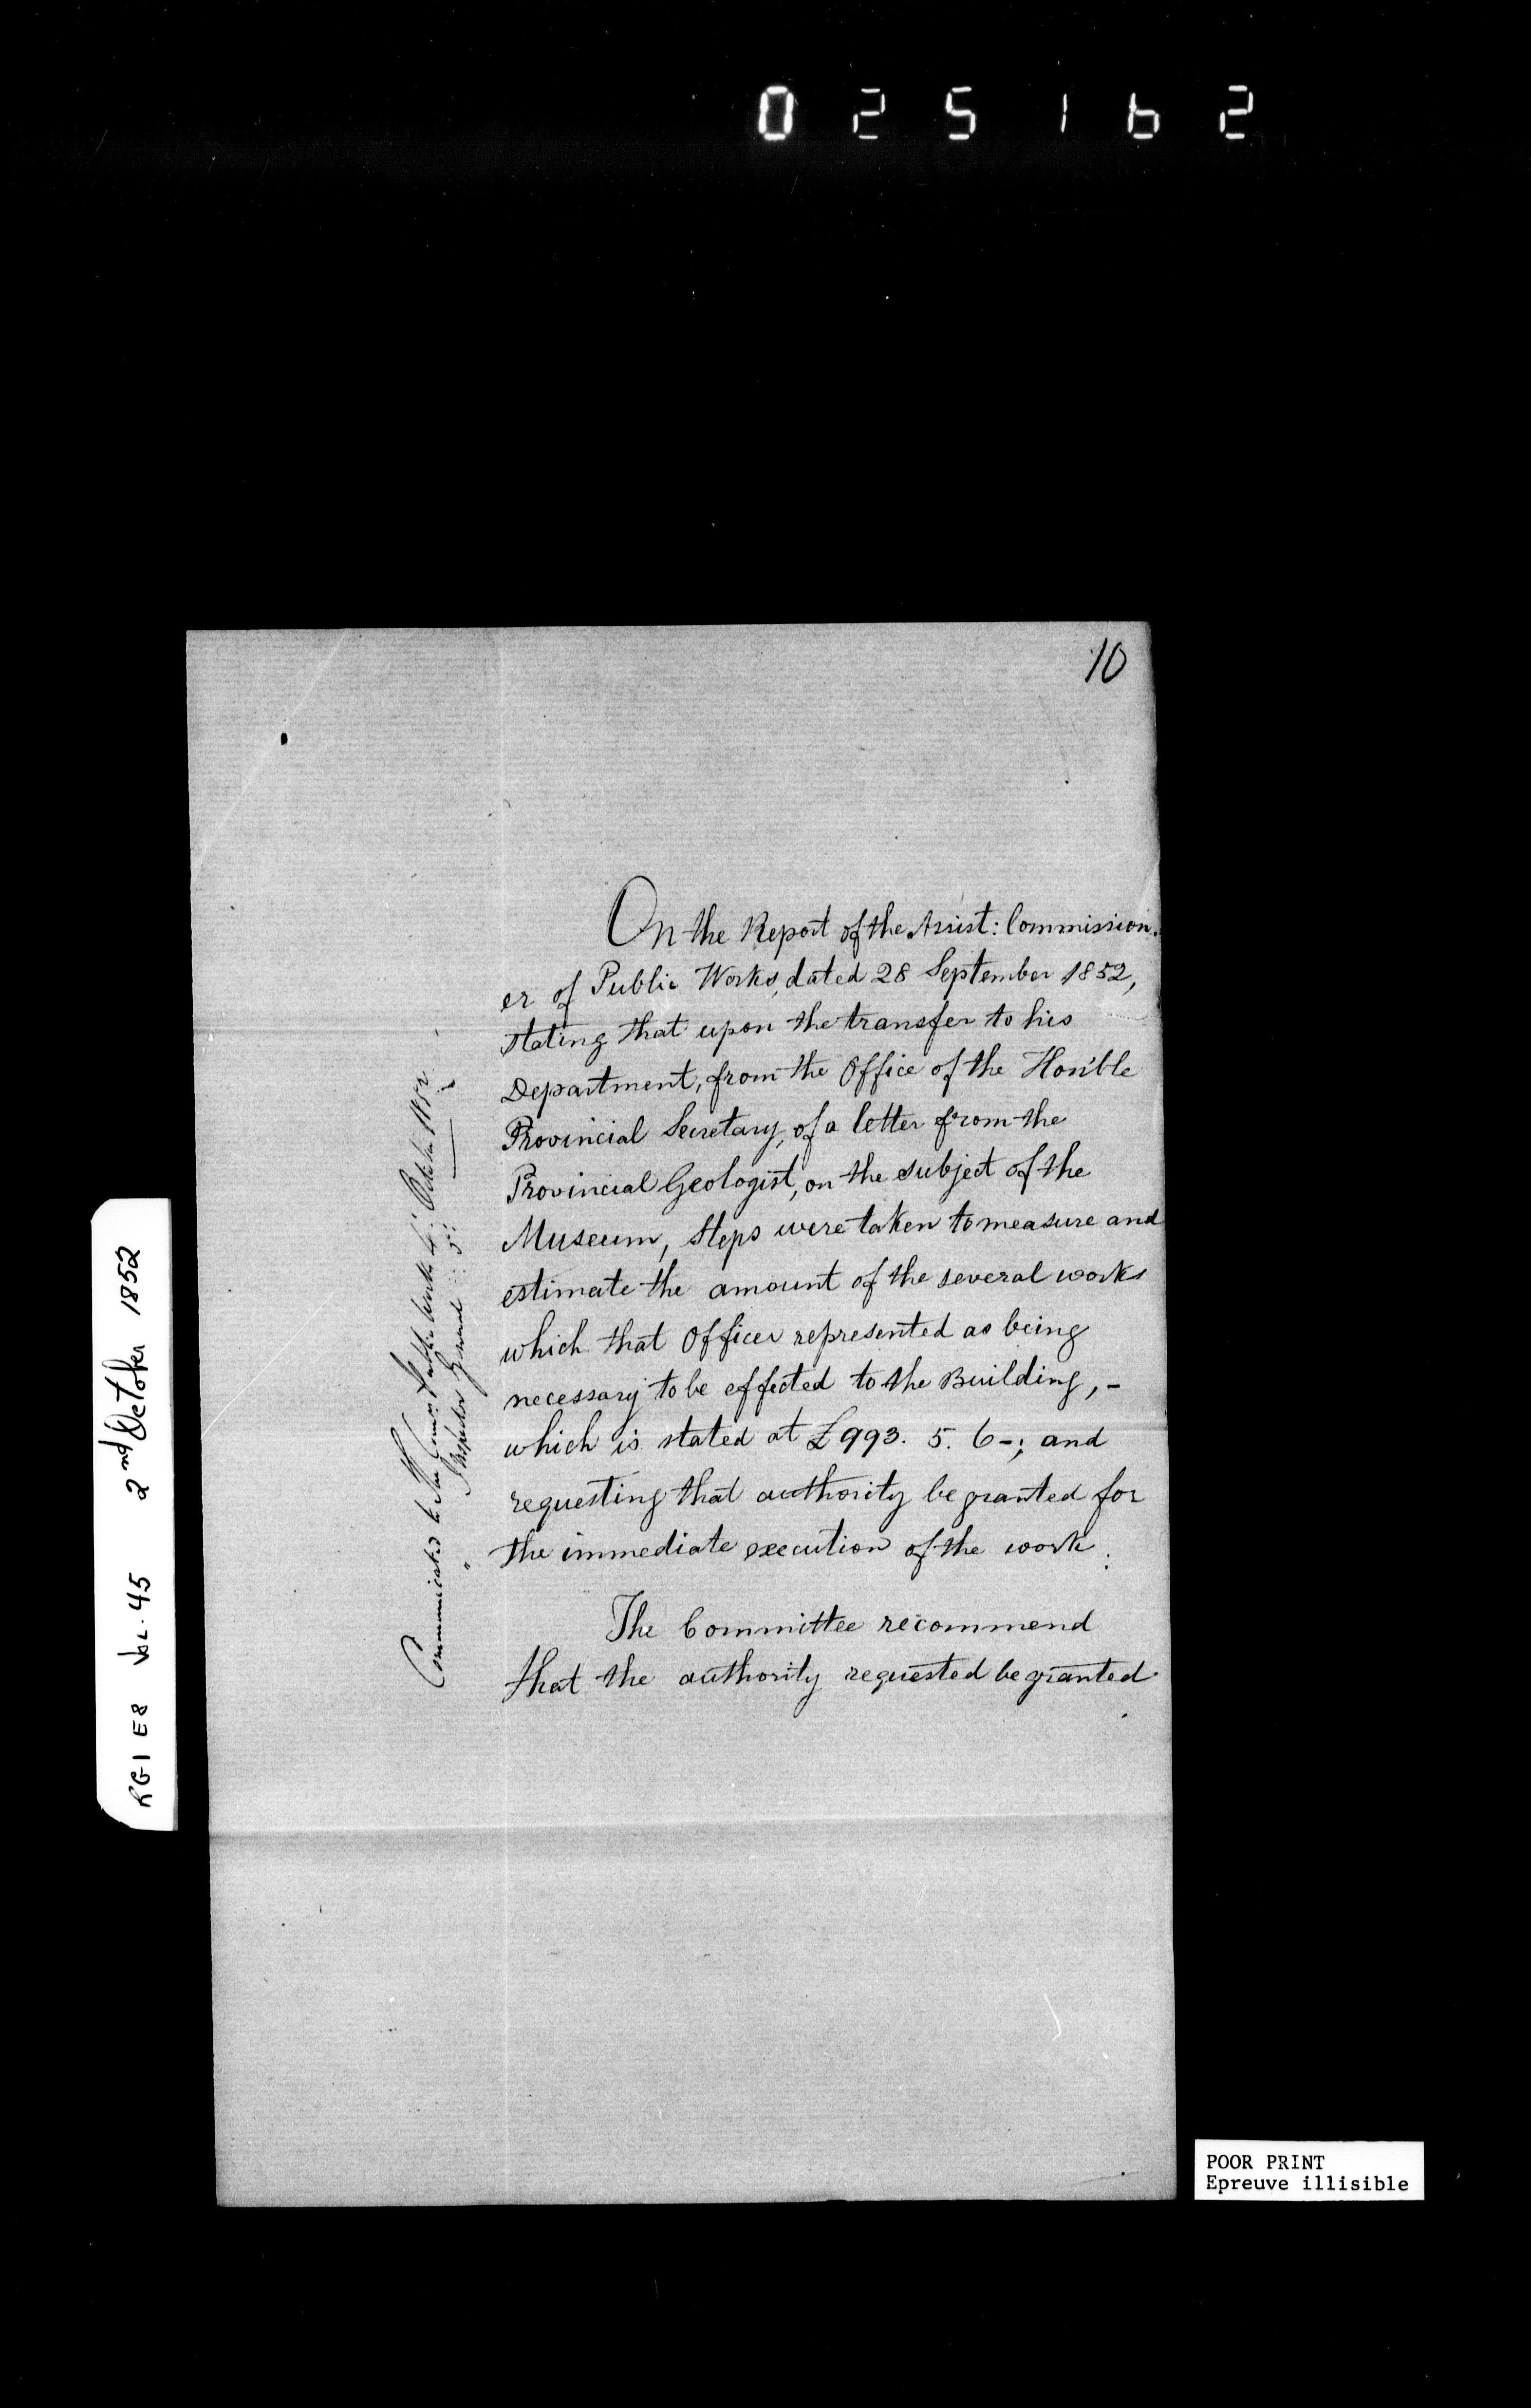 025162
10
On the Report of the Assist: Commission-
er of Public Works, dated 28 September 1852,
stating that upon the transfer to his
Department, from the Office of the Hon'ble
Provincial Secretary, of a letter from the
Provincial Geologist, on the subject of the
Museum, steps were taken to measure and
estimate the amount of the several works
which that Officer represented as being
necessary to be effected to the Building, -
which is stated at £993. 5. 6-; and
requesting that authority be granted for
the immediate execution of the work.
The Committee recommend
that the authority requested be granted.
Communicated to the Public Works 4: October 1852
" Inspector General 5:
RG1 E8 Vol. 45 2nd October 1852
POOR PRINT
Epreuve illisible